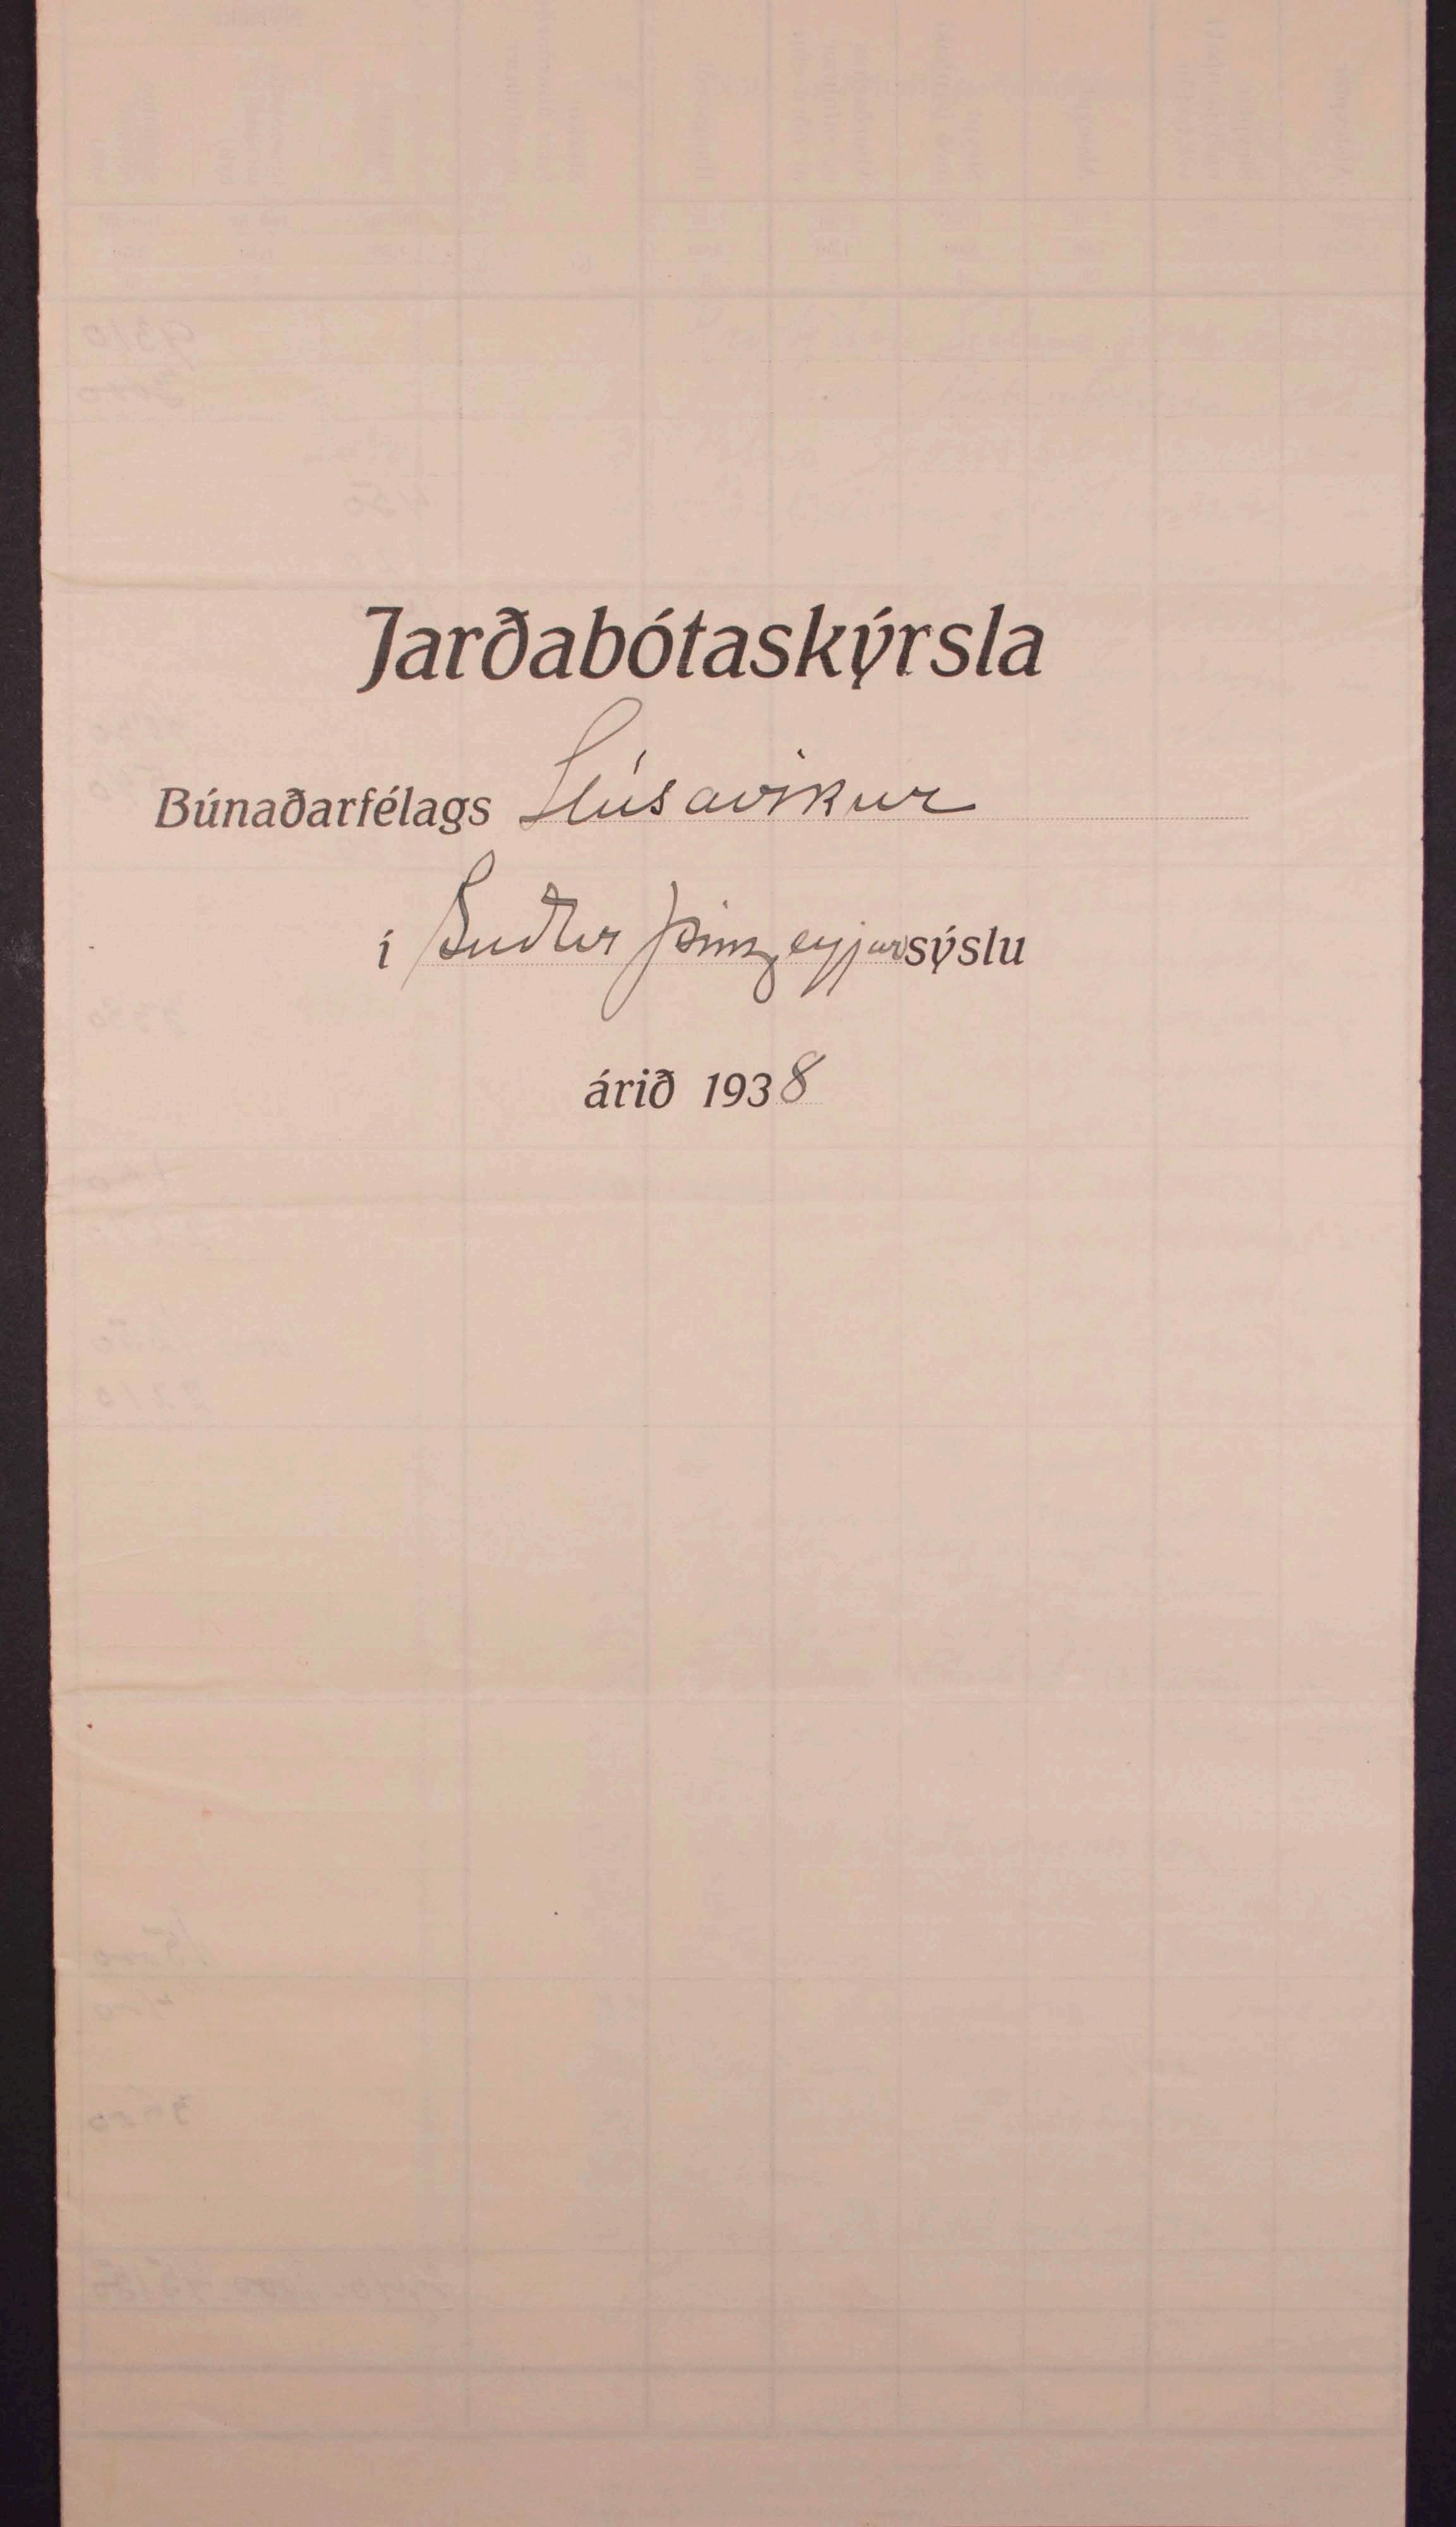 Jarðabótaskýrsla
Búnaðarfélags Húsavíkur
í Suður Þingeyjarsýslu
árið 1938